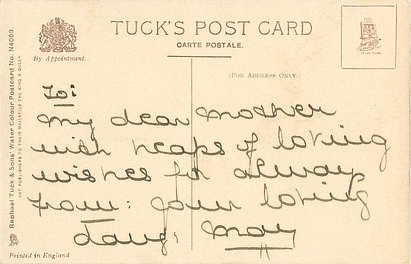 TUCK'S POST CARD
CARTE POSTALE.
By Appointment.
(FOR ADDRESS ONLY.)
To:
my dear mother
with heaps of loving
wishes for always
from: your loving
daug, May
Raphael Tuck & Sons' Water Colour Postcard No. R4069.
ART PUBLISHERS TO THEIR MAJESTIES THE KING & QUEEN
Printed in England